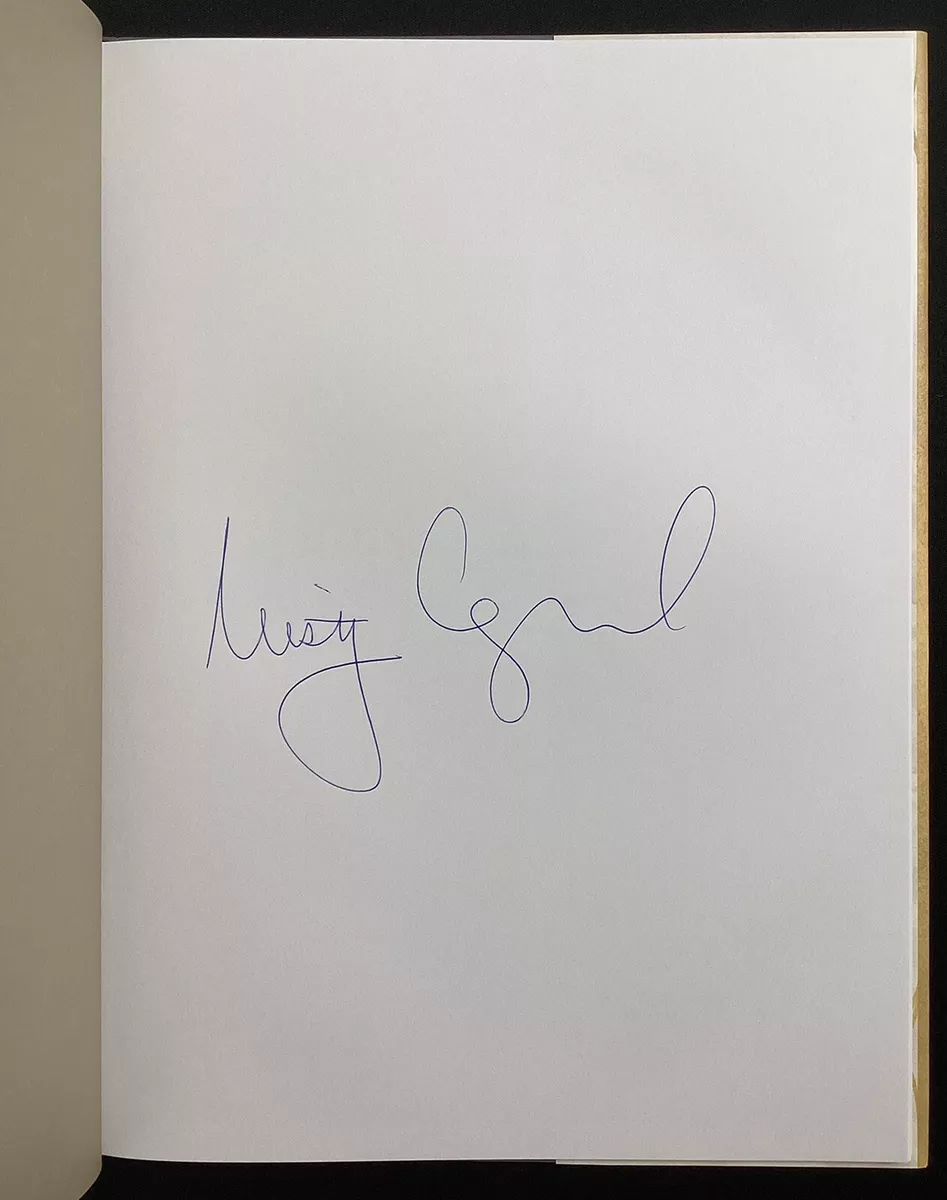 Misty Copeland